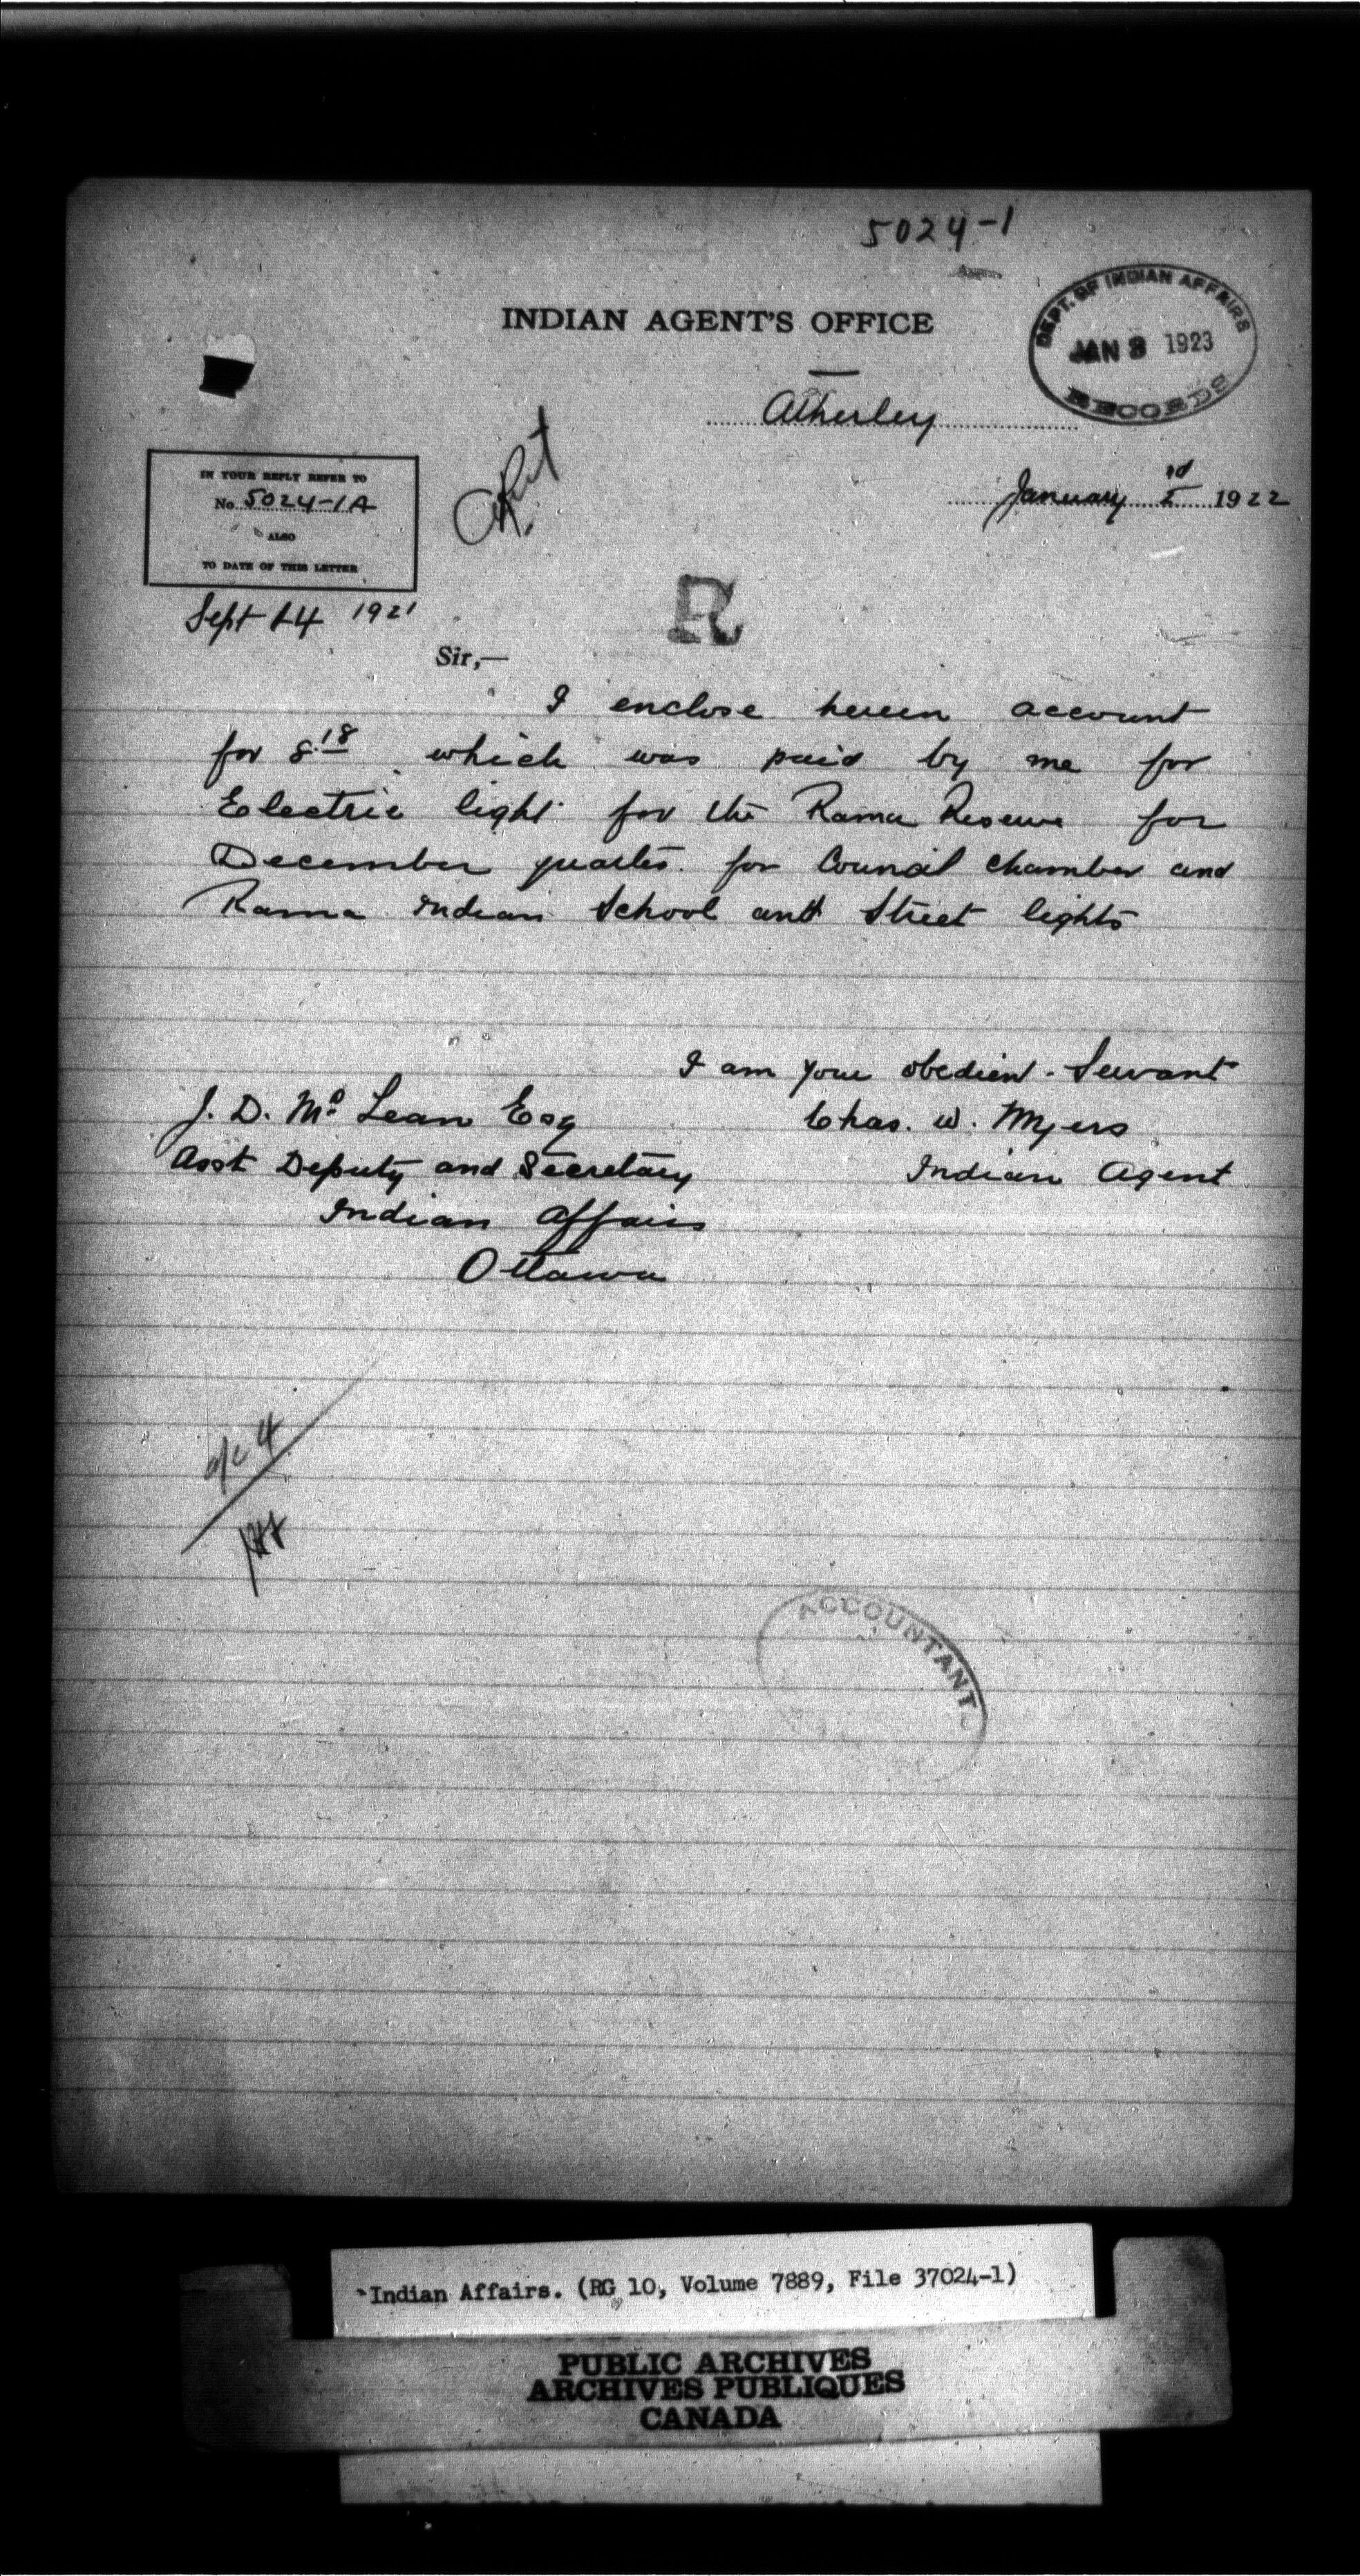 5024-1
INDIAN AGENT'S OFFICE
DEPT. OF INDIAN AFFAIRS
JAN 3 1923
RECORDS
Atherley
January 2nd 1922
IN YOUR REPLY REFER TO
No. 5024-1A
ALSO
TO DATE OF THIS LETTER
Sept 14 1921
R
Sir,—
I enclose herein account
for 8.18 which was paid by me for
Electric light for the Rama Reserve for
December quarter. for Council chamber and
Rama Indian School and Street lights
I am your obedient Servant
J. D. Mc Lean Esq
Chas. W. Myers
Asst Deputy and Secretary
Indian Agent
Indian Affairs
Ottawa
a/c 4
ACCOUNTANT
Indian Affairs. (RG 10, Volume 7889, File 37024-1)
PUBLIC ARCHIVES
ARCHIVES PUBLIQUES
CANADA